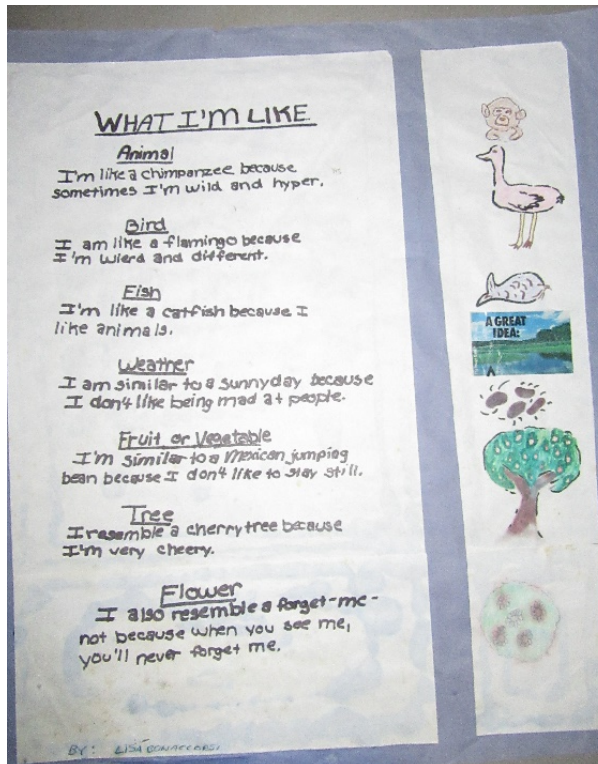 WHAT I'M LIKE
Animal
I'm like a chimpanzee because
sometimes I'm wild and hyper.
Bird
I am like a flamingo because
I'm wierd and different.
Fish
I'm like a catfish because I
like animals.
Weather
I am similar to a sunny day because
I don't like being mad at people.
Fruit or Vegetable
I'm similar to a Mexican jumping
bean because I don't like to stay still.
Tree
I resemble a cherry tree because
I'm very cheery.
Flower
I also resemble a forget-me-
not because when you see me,
you'll never forget me.
BY: LISA
A GREAT
IDEA: